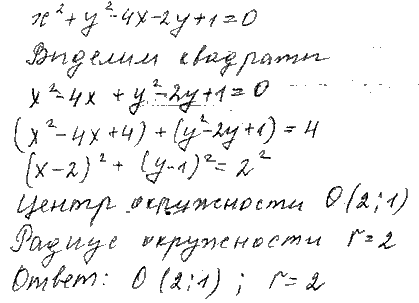 x²+y²-4x-2y+1=0
Выделим квадраты
x²-4x + y²-2y+1=0
(x²-4x+4) + (y²-2y+1) = 4
(x-2)² + (y-1)² = 2²
Центр окружности O(2;1)
Радиус окружности r=2
Ответ: O(2;1) ; r=2